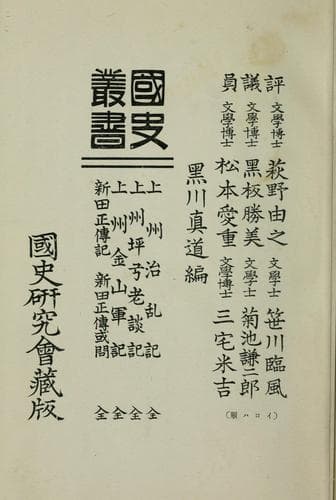 評 文學博士 萩野由之 文學士 笹川臨風
議 文學博士 黑板勝美 文學士 菊池謙二郎
員 文學博士 松本愛重 文學博士 三宅米吉
(イロハ順)
黑川真道編
國史
叢書
上州治乱記 全
上州坪弓老談記 全
上州金山軍記 全
新田正傳記 新田正傳或問 全
國史研究會藏版